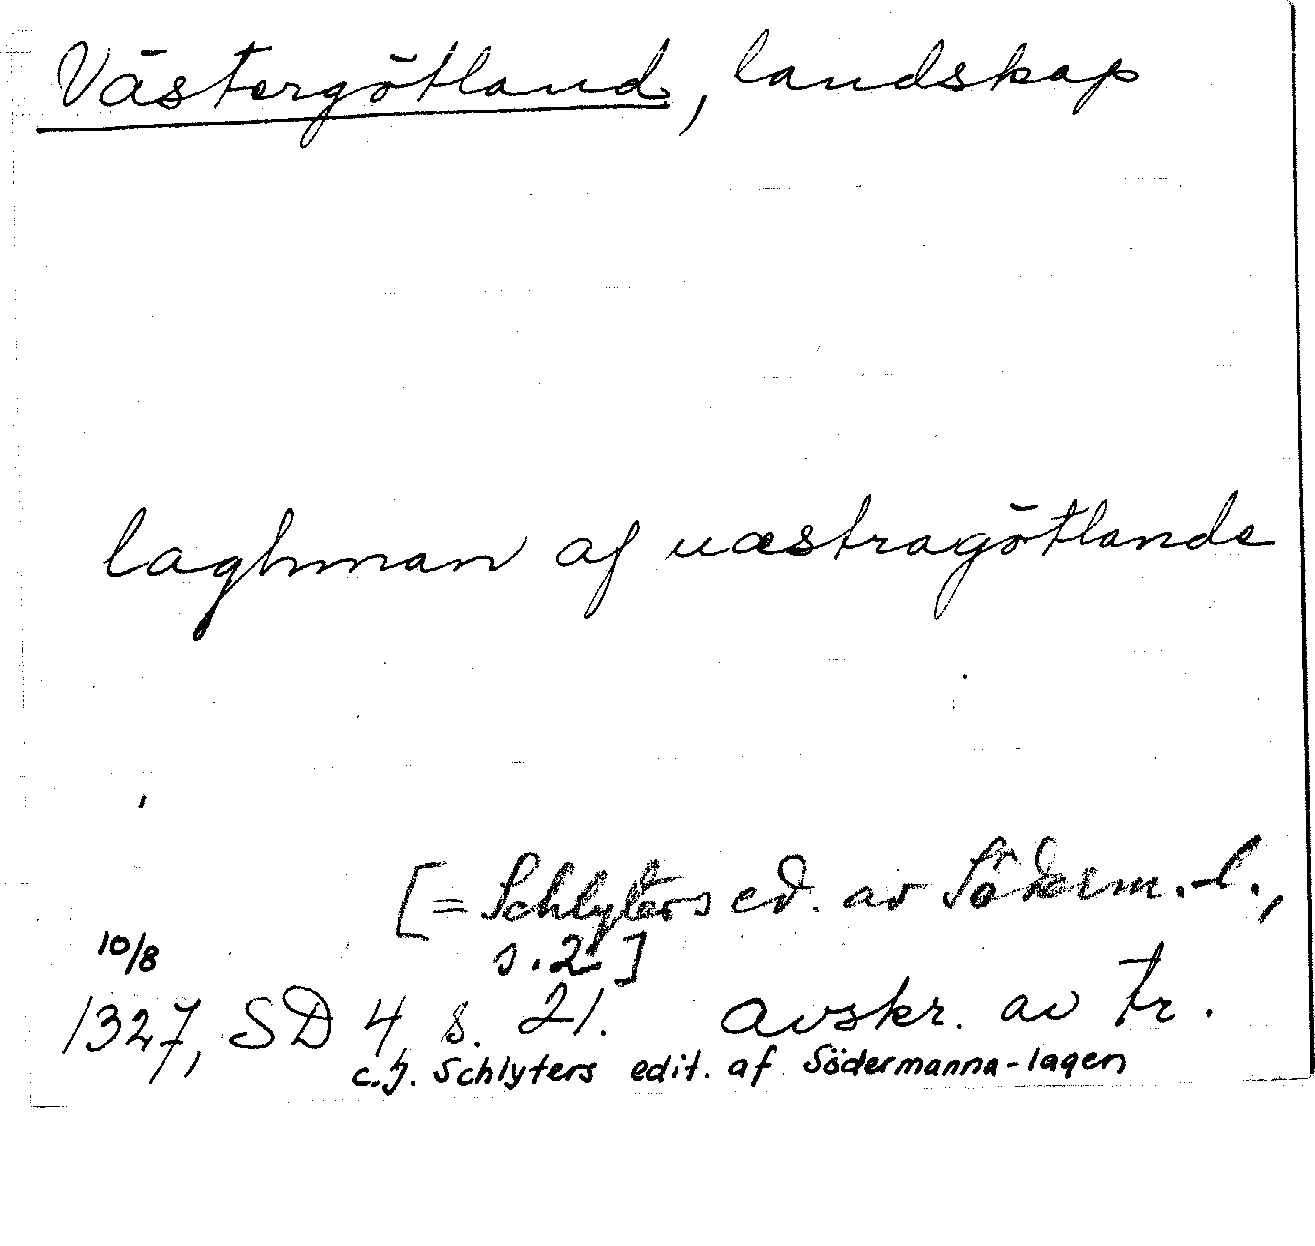 Västergötland, landskap
laghman af uæstragötlande
[= Schlyters ed. av Söderm.-l.,
s. 2]
10/8
1327, SD 4, s. 21. avskr. av tr.
C.J. Schlyters edit. af Södermanna-lagen